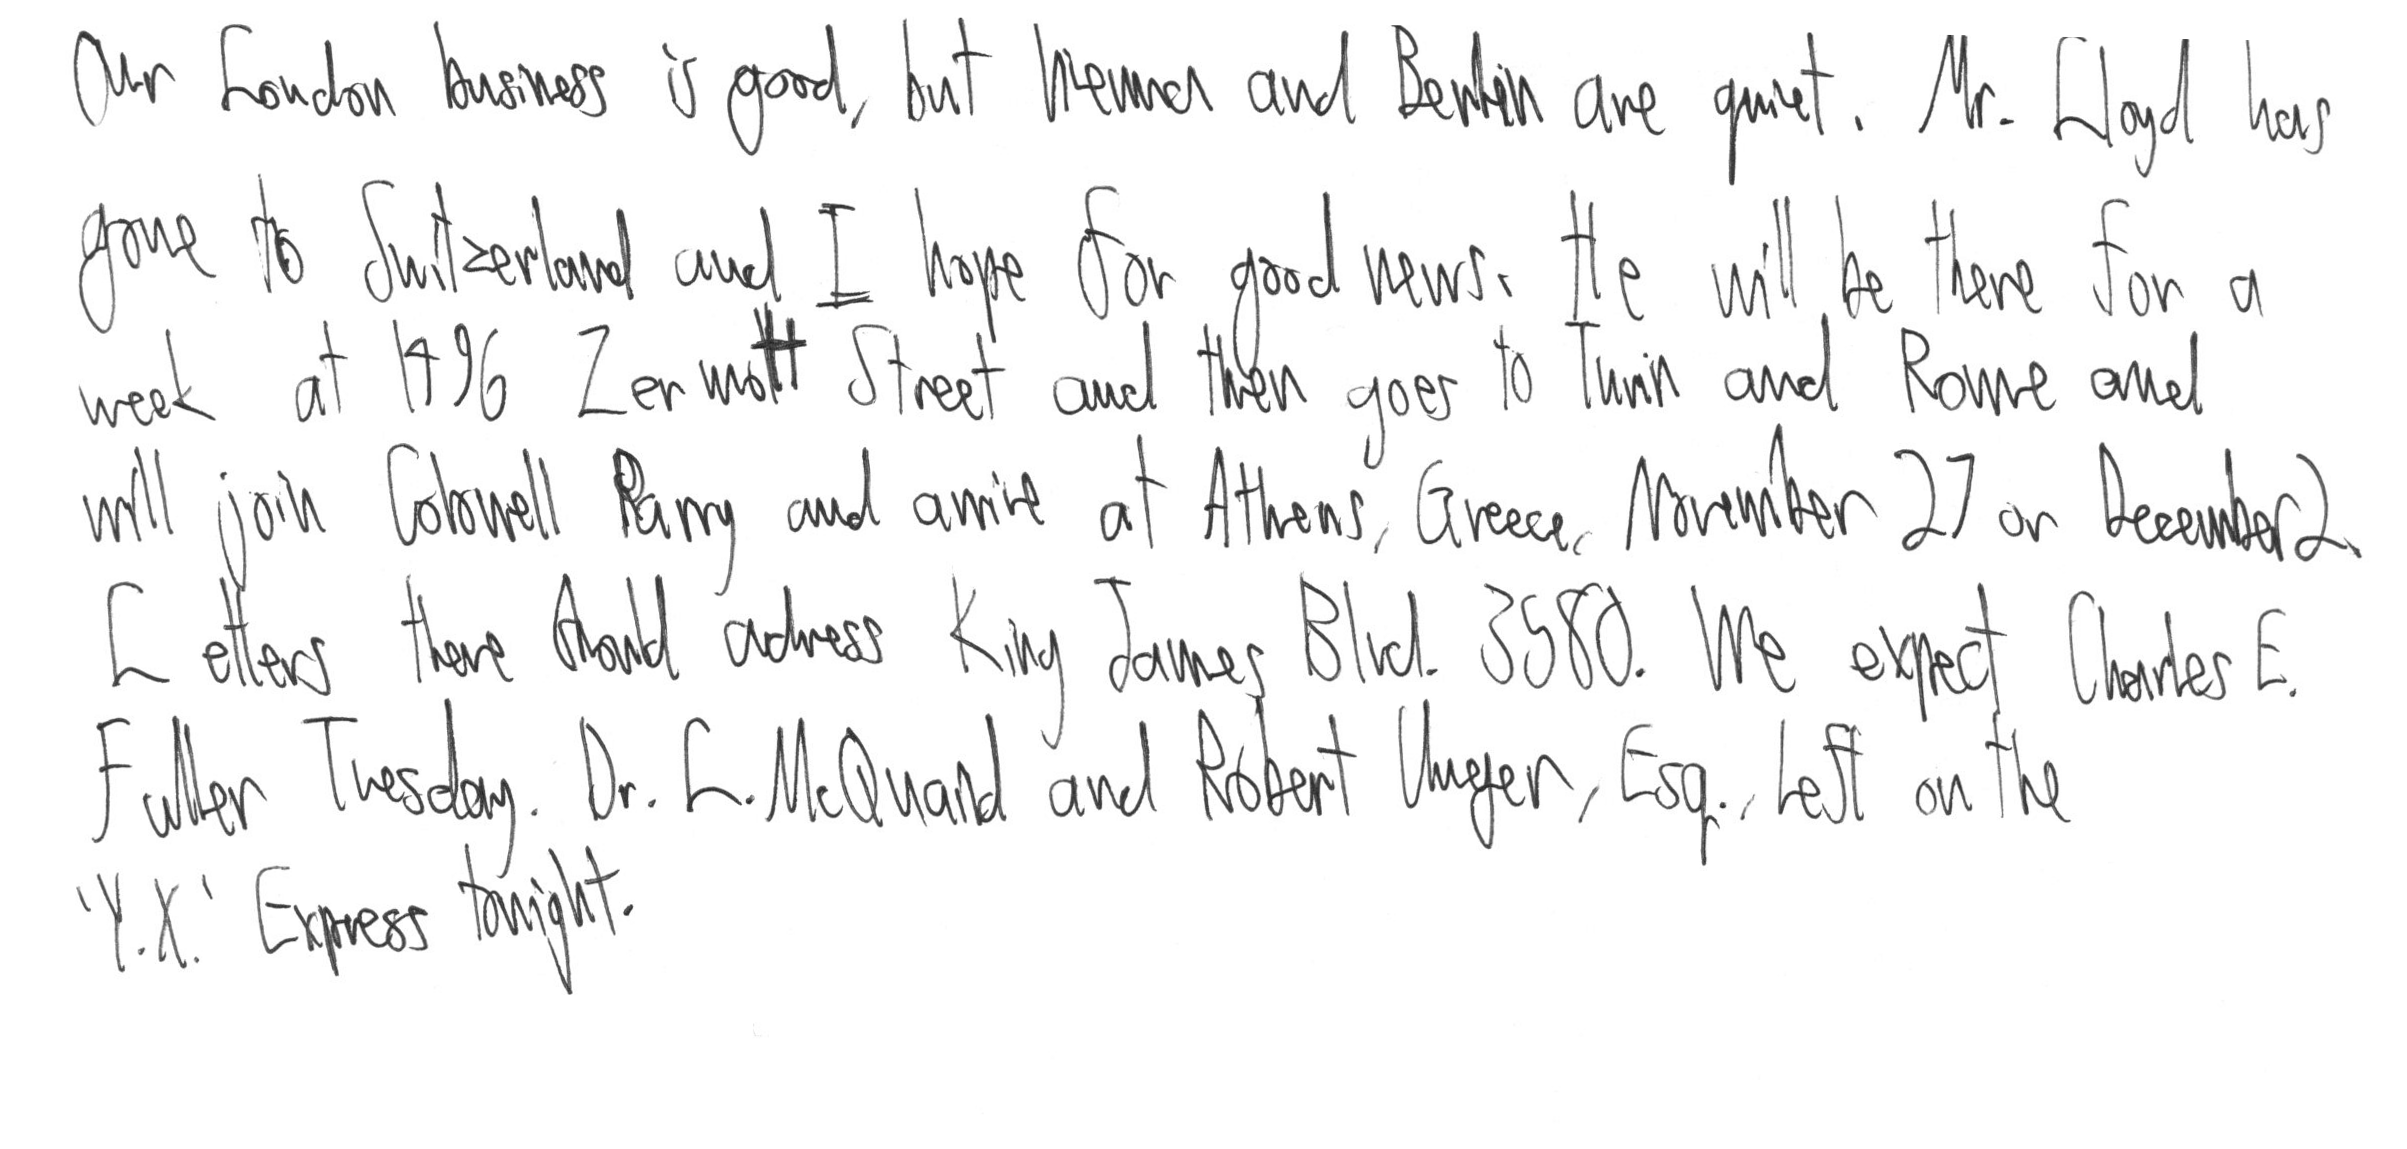 Our London business is good, but Vienna and Berlin are quiet. Mr. Lloyd has
gone to Switzerland and I hope for good news. He will be there for a
week at 1496 Zermott Street and then goes to Turin and Rome and
will join Colonell Parry and arrive at Athens, Greece, November 27 or December 2.
Letters there should adress King James Blvd. 3580. We expect Charles E.
Fuller Tuesday. Dr. L. McQuaid and Robert Unger, Esq., Left on the
'Y.X.' Express tonight.